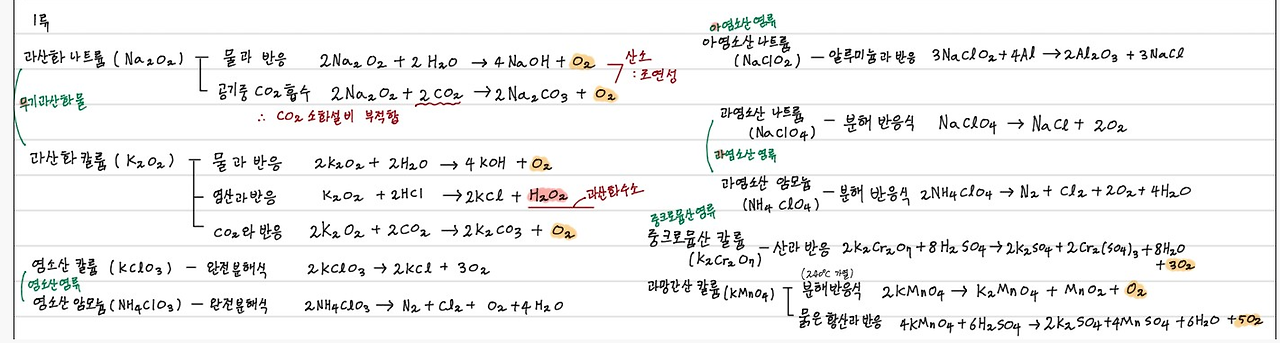 1류
과산화 나트륨 (Na₂O₂) 물과 반응 2Na₂O₂ + 2H₂O → 4NaOH + O₂ 산소 : 조연성
공기중 CO₂ 흡수 2Na₂O₂ + 2CO₂ → 2Na₂CO₃ + O₂
무기과산화물
∴ CO₂ 소화설비 부적합
과산화 칼륨 (K₂O₂) 물과 반응 2K₂O₂ + 2H₂O → 4KOH + O₂
염산과 반응 K₂O₂ + 2HCl → 2KCl + H₂O₂ 과산화수소
CO₂와 반응 2K₂O₂ + 2CO₂ → 2K₂CO₃ + O₂
염소산 칼륨 (KClO₃) - 완전분해식 2KClO₃ → 2KCl + 3O₂
염소산염류
염소산 암모늄 (NH₄ClO₃) - 완전분해식 2NH₄ClO₃ → N₂ + Cl₂ + O₂ + 4H₂O
아염소산염류
아염소산 나트륨
(NaClO₂) - 알루미늄과 반응 3NaClO₂ + 4Al → 2Al₂O₃ + 3NaCl
과염소산 나트륨
(NaClO₄) - 분해 반응식 NaClO₄ → NaCl + 2O₂
과염소산염류
과염소산 암모늄
(NH₄ClO₄) - 분해 반응식 2NH₄ClO₄ → N₂ + Cl₂ + 2O₂ + 4H₂O
중크로뮴산염류
중크로뮴산 칼륨
(K₂Cr₂O₇) - 산과 반응 2K₂Cr₂O₇ + 8H₂SO₄ → 2K₂SO₄ + 2Cr₂(SO₄)₃ + 8H₂O
+ 3O₂
(240℃ 가열)
과망간산 칼륨 (KMnO₄) 분해반응식 2KMnO₄ → K₂MnO₄ + MnO₂ + O₂
묽은 황산과 반응 4KMnO₄ + 6H₂SO₄ → 2K₂SO₄ + 4MnSO₄ + 6H₂O + 5O₂